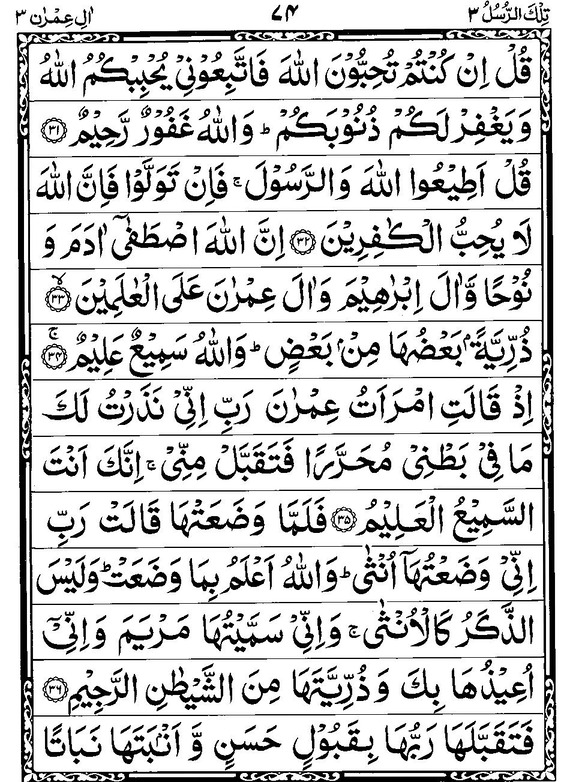 تِلْكَ الرُّسُلُ ٣ ٧٤ اٰلِ عِمْرٰن ٣
قُلْ اِنْ كُنْتُمْ تُحِبُّوْنَ اللّٰهَ فَاتَّبِعُوْنِيْ يُحْبِبْكُمُ اللّٰهُ
وَيَغْفِرْ لَكُمْ ذُنُوْبَكُمْ ؕ وَاللّٰهُ غَفُوْرٌ رَّحِيْمٌ ﴿٣١﴾
قُلْ اَطِيْعُوا اللّٰهَ وَالرَّسُوْلَ ۚ فَاِنْ تَوَلَّوْا فَاِنَّ اللّٰهَ
لَا يُحِبُّ الْكٰفِرِيْنَ ﴿٣٢﴾ اِنَّ اللّٰهَ اصْطَفٰۤى اٰدَمَ وَ
نُوْحًا وَّاٰلَ اِبْرٰهِيْمَ وَاٰلَ عِمْرٰنَ عَلَى الْعٰلَمِيْنَ ﴿٣٣﴾ ۙ
ذُرِّيَّةًۢ بَعْضُهَا مِنْۢ بَعْضٍ ؕ وَاللّٰهُ سَمِيْعٌ عَلِيْمٌ ﴿٣٤﴾ ۚ
اِذْ قَالَتِ امْرَاَتُ عِمْرٰنَ رَبِّ اِنِّيْ نَذَرْتُ لَكَ
مَا فِيْ بَطْنِيْ مُحَرَّرًا فَتَقَبَّلْ مِنِّيْ ۚ اِنَّكَ اَنْتَ
السَّمِيْعُ الْعَلِيْمُ ﴿٣٥﴾ فَلَمَّا وَضَعَتْهَا قَالَتْ رَبِّ
اِنِّيْ وَضَعْتُهَاۤ اُنْثٰى ؕ وَاللّٰهُ اَعْلَمُ بِمَا وَضَعَتْ ؕ وَلَيْسَ
الذَّكَرُ كَالْاُنْثٰى ۚ وَاِنِّيْ سَمَّيْتُهَا مَرْيَمَ وَاِنِّيْۤ
اُعِيْذُهَا بِكَ وَذُرِّيَّتَهَا مِنَ الشَّيْطٰنِ الرَّجِيْمِ ﴿٣٦﴾
فَتَقَبَّلَهَا رَبُّهَا بِقَبُوْلٍ حَسَنٍ وَّ اَنْۢبَتَهَا نَبَاتًا